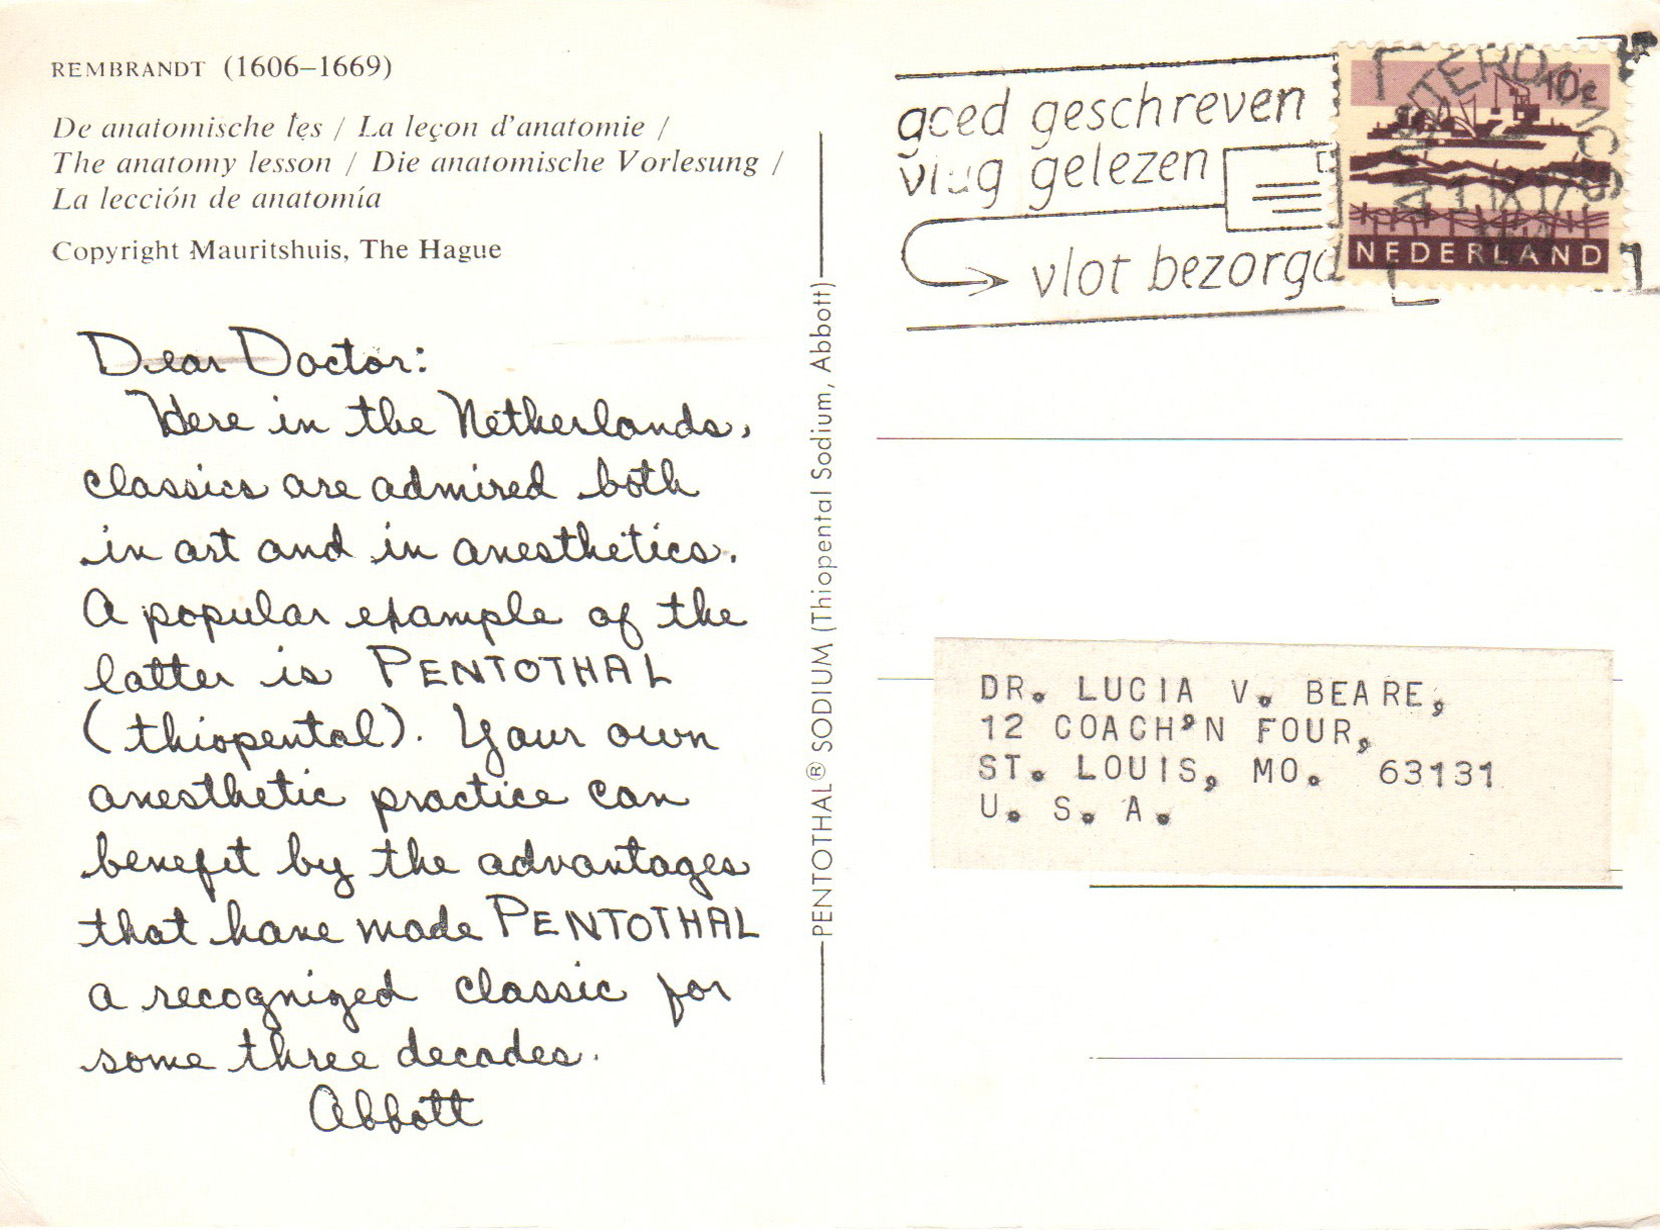 REMBRANDT (1606–1669)
De anatomische les / La leçon d'anatomie /
The anatomy lesson / Die anatomische Vorlesung /
La lección de anatomía
Copyright Mauritshuis, The Hague
Dear Doctor:
Here in the Netherlands,
classics are admired both
in art and in anesthetics.
A popular example of the
latter is PENTOTHAL
(thiopental). Your own
anesthetic practice can
benefit by the advantages
that have made PENTOTHAL
a recognized classic for
some three decades.
Abbott
PENTOTHAL® SODIUM (Thiopental Sodium, Abbott)
goed geschreven
vlug gelezen
vlot bezorgd
10c
NEDERLAND
DR. LUCIA V. BEARE,
12 COACH'N FOUR,
ST. LOUIS, MO. 63131
U. S. A.